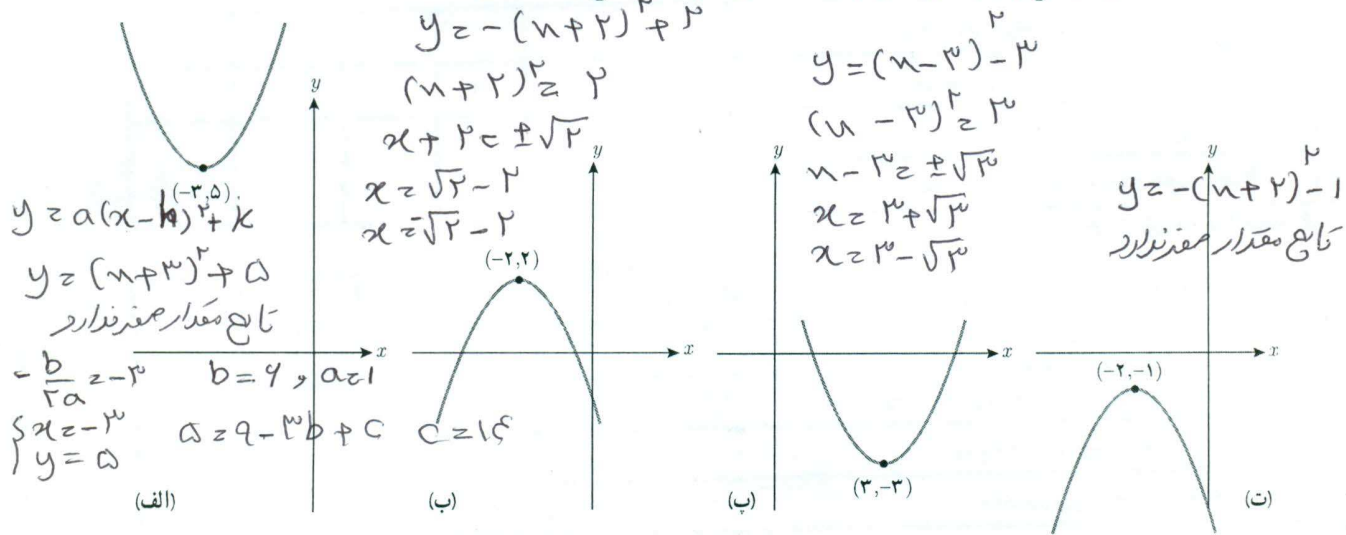 y
(-۳,۵)
y = a(x-h)^۲ + k
y = (x+۳)^۲ + ۵
تابع مقدار صفر ندارد
x
-b/۲a = -۳ b = ۶ و a = ۱
{x = -۳
y = ۵
۵ = ۹ - ۳b + c c = ۱۴
(الف)
y = -(x+۲)^۲ + ۲
(x+۲)^۲ = ۲
x + ۲ = ±√۲
x = √۲ - ۲
x = -√۲ - ۲
y
(-۲,۲)
x
(ب)
y = (x-۳)^۲ - ۳
(x-۳)^۲ = ۳
x - ۳ = ±√۳
x = ۳ + √۳
x = ۳ - √۳
y
x
(۳,-۳)
(پ)
y
y = -(x+۲)^۲ - ۱
تابع مقدار صفر ندارد
x
(-۲,-۱)
(ت)